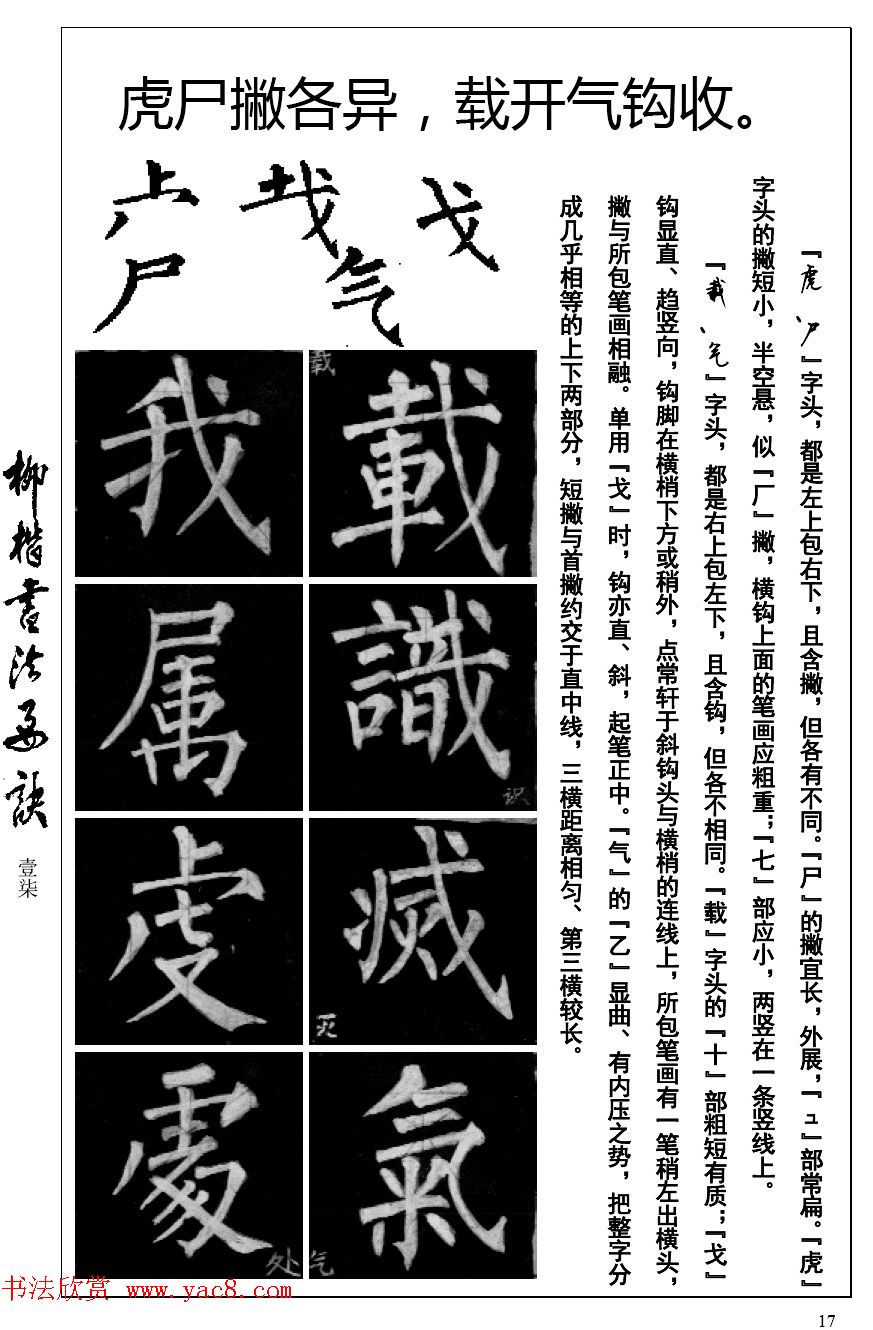 虎尸撇各异，载开气钩收。
『虎、尸』字头，都是左上包右下，且含撇，但各有不同。『尸』的撇宜长，外展，『ユ』部常扁。『虎』
字头的撇短小，半空悬，似『厂』撇，横钩上面的笔画应粗重；『七』部应小，两竖在一条竖线上。
『载、气』字头，都是右上包左下，且含钩，但各不相同。『载』字头的『十』部粗短有质；『戈』
钩显直、趋竖向，钩脚在横梢下方或稍外，点常轩于斜钩头与横梢的连线上，所包笔画有一笔稍左出横头，
撇与所包笔画相融。单用『戈』时，钩亦直、斜，起笔正中。『气』的『乙』显曲、有内压之势，把整字分
成几乎相等的上下两部分，短撇与首撇约交于直中线，三横距离相匀、第三横较长。
戈
气
尸
載
载
我
識
识
属
灭
虔
氣
气
處
处
柳楷书法要诀
壹柒
书法欣赏 www.yac8.com
17